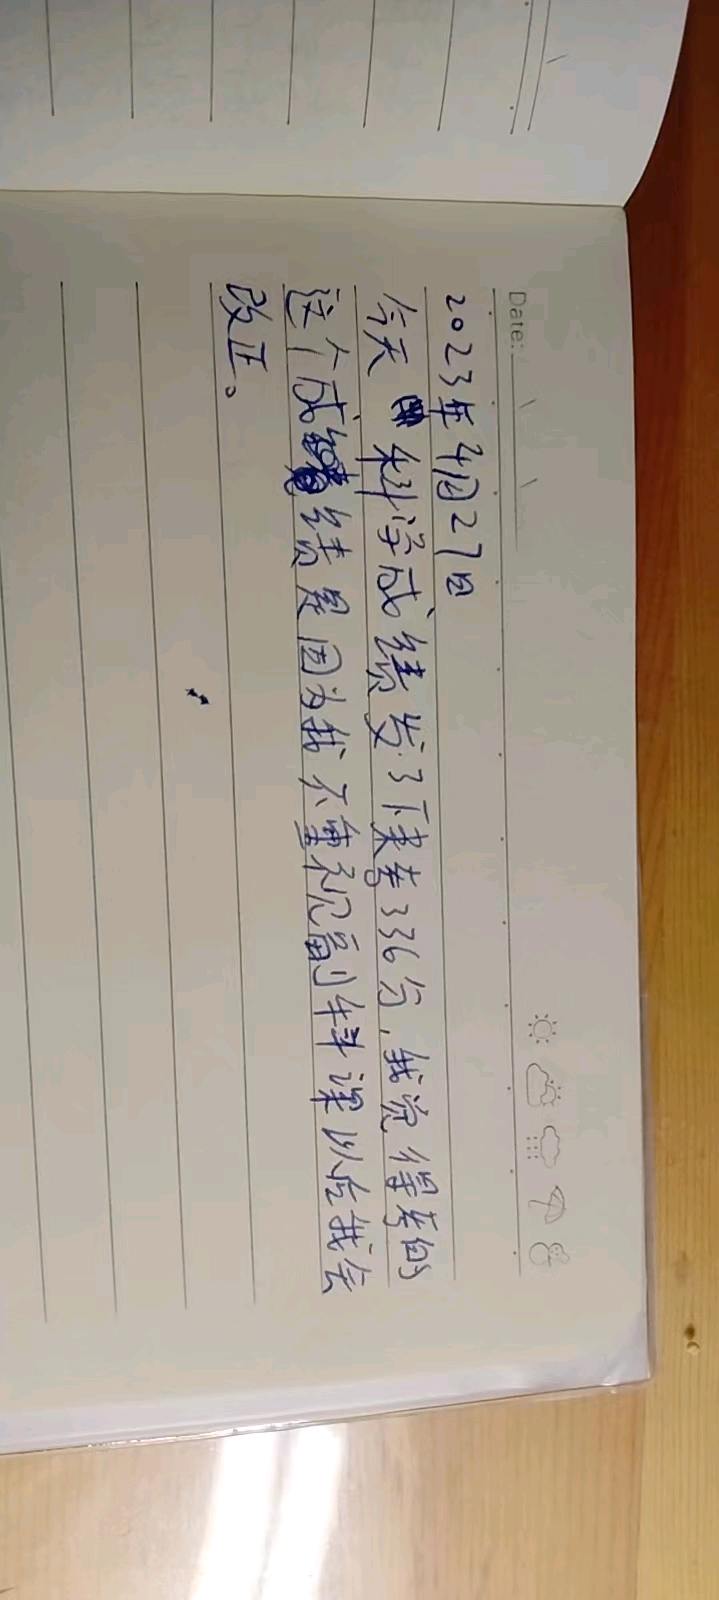 Date:
2023年4月27日
今天科学成绩发了下来考了36分，我觉得考的
这个成绩是因为我不重视副科课以后我会
改正。